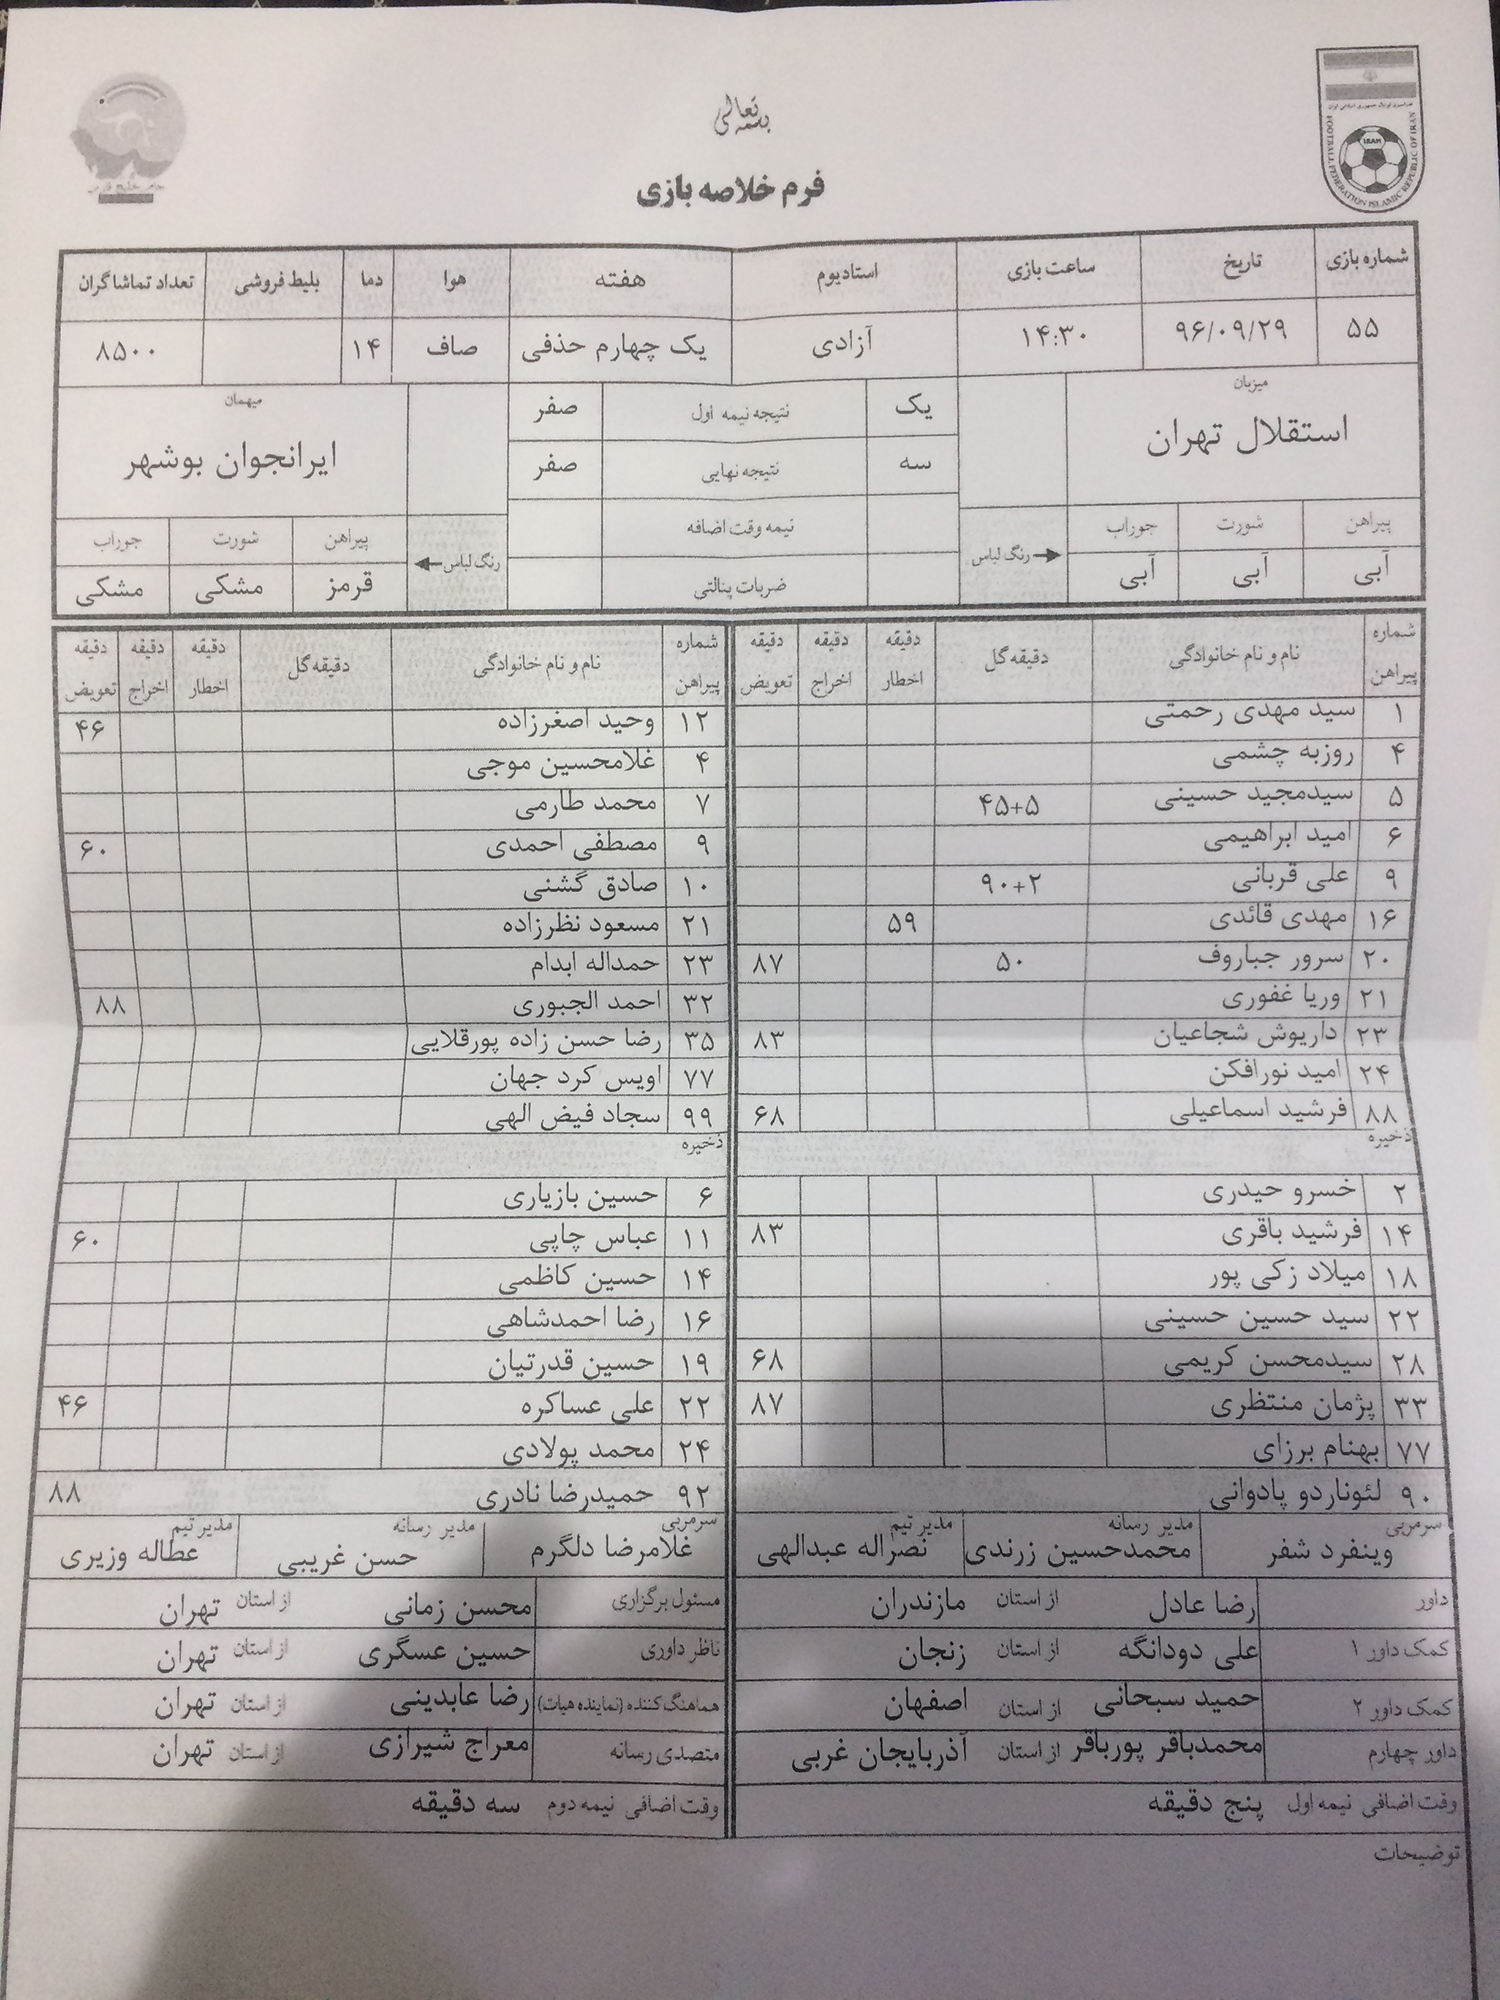 بسمه تعالی
فرم خلاصه بازی
FOOTBALL FEDERATION ISLAMIC REPUBLIC OF IRAN
IRAN
شماره بازی تاریخ ساعت بازی استادیوم هفته هوا دما بلیط فروشی تعداد تماشاگران
۵۵ ۹۶/۰۹/۲۹ ۱۴:۳۰ آزادی یک چهارم حذفی صاف ۱۴ ۸۵۰۰
میزبان میهمان
استقلال تهران ایرانجوان بوشهر
یک نتیجه نیمه اول صفر
سه نتیجه نهایی صفر
نیمه وقت اضافه
ضربات پنالتی
پیراهن شورت جوراب رنگ لباس رنگ لباس پیراهن شورت جوراب
آبی آبی آبی قرمز مشکی مشکی
شماره پیراهن نام و نام خانوادگی دقیقه گل دقیقه اخطار دقیقه اخراج دقیقه تعویض شماره پیراهن نام و نام خانوادگی دقیقه گل دقیقه اخطار دقیقه اخراج دقیقه تعویض
۱ سید مهدی رحمتی ۱۲ وحید اصغرزاده ۴۶
۴ روزبه چشمی ۴ غلامحسین موجی
۵ سیدمجید حسینی ۴۵+۵ ۷ محمد طارمی
۶ امید ابراهیمی ۹ مصطفی احمدی ۶۰
۹ علی قربانی ۹۰+۲ ۱۰ صادق گشنی
۱۶ مهدی قائدی ۵۹ ۲۱ مسعود نظرزاده
۲۰ سرور جباروف ۵۰ ۸۷ ۲۳ حمداله ابدام
۲۱ وریا غفوری ۳۲ احمد الجبوری ۸۸
۲۳ داریوش شجاعیان ۸۳ ۳۵ رضا حسن زاده پورقلایی
۲۴ امید نورافکن ۷۷ اویس کرد جهان
۸۸ فرشید اسماعیلی ۶۸ ۹۹ سجاد فیض الهی
ذخیره ذخیره
۲ خسرو حیدری ۶ حسین بازیاری
۱۴ فرشید باقری ۸۳ ۱۱ عباس چاپی ۶۰
۱۸ میلاد زکی پور ۱۴ حسین کاظمی
۲۲ سید حسین حسینی ۱۶ رضا احمدشاهی
۲۸ سیدمحسن کریمی ۶۸ ۱۹ حسین قدرتیان
۳۳ پژمان منتظری ۸۷ ۲۲ علی عساکره ۴۶
۷۷ بهنام برزای ۲۴ محمد پولادی
۹۰ لئوناردو پادوانی ۹۲ حمیدرضا نادری ۸۸
سرمربی مدیر رسانه مدیر تیم سرمربی مدیر رسانه مدیر تیم
وینفرد شفر محمدحسین زرندی نصراله عبدالهی غلامرضا دلگرم حسن غریبی عطاله وزیری
داور رضا عادل از استان مازندران مسئول برگزاری محسن زمانی از استان تهران
کمک داور ۱ علی دودانگه از استان زنجان ناظر داوری حسین عسگری از استان تهران
کمک داور ۲ حمید سبحانی از استان اصفهان هماهنگ کننده (نماینده هیات) رضا عابدینی از استان تهران
داور چهارم محمدباقر پورباقر از استان آذربایجان غربی متصدی رسانه معراج شیرازی از استان تهران
وقت اضافی نیمه اول پنج دقیقه وقت اضافی نیمه دوم سه دقیقه
توضیحات